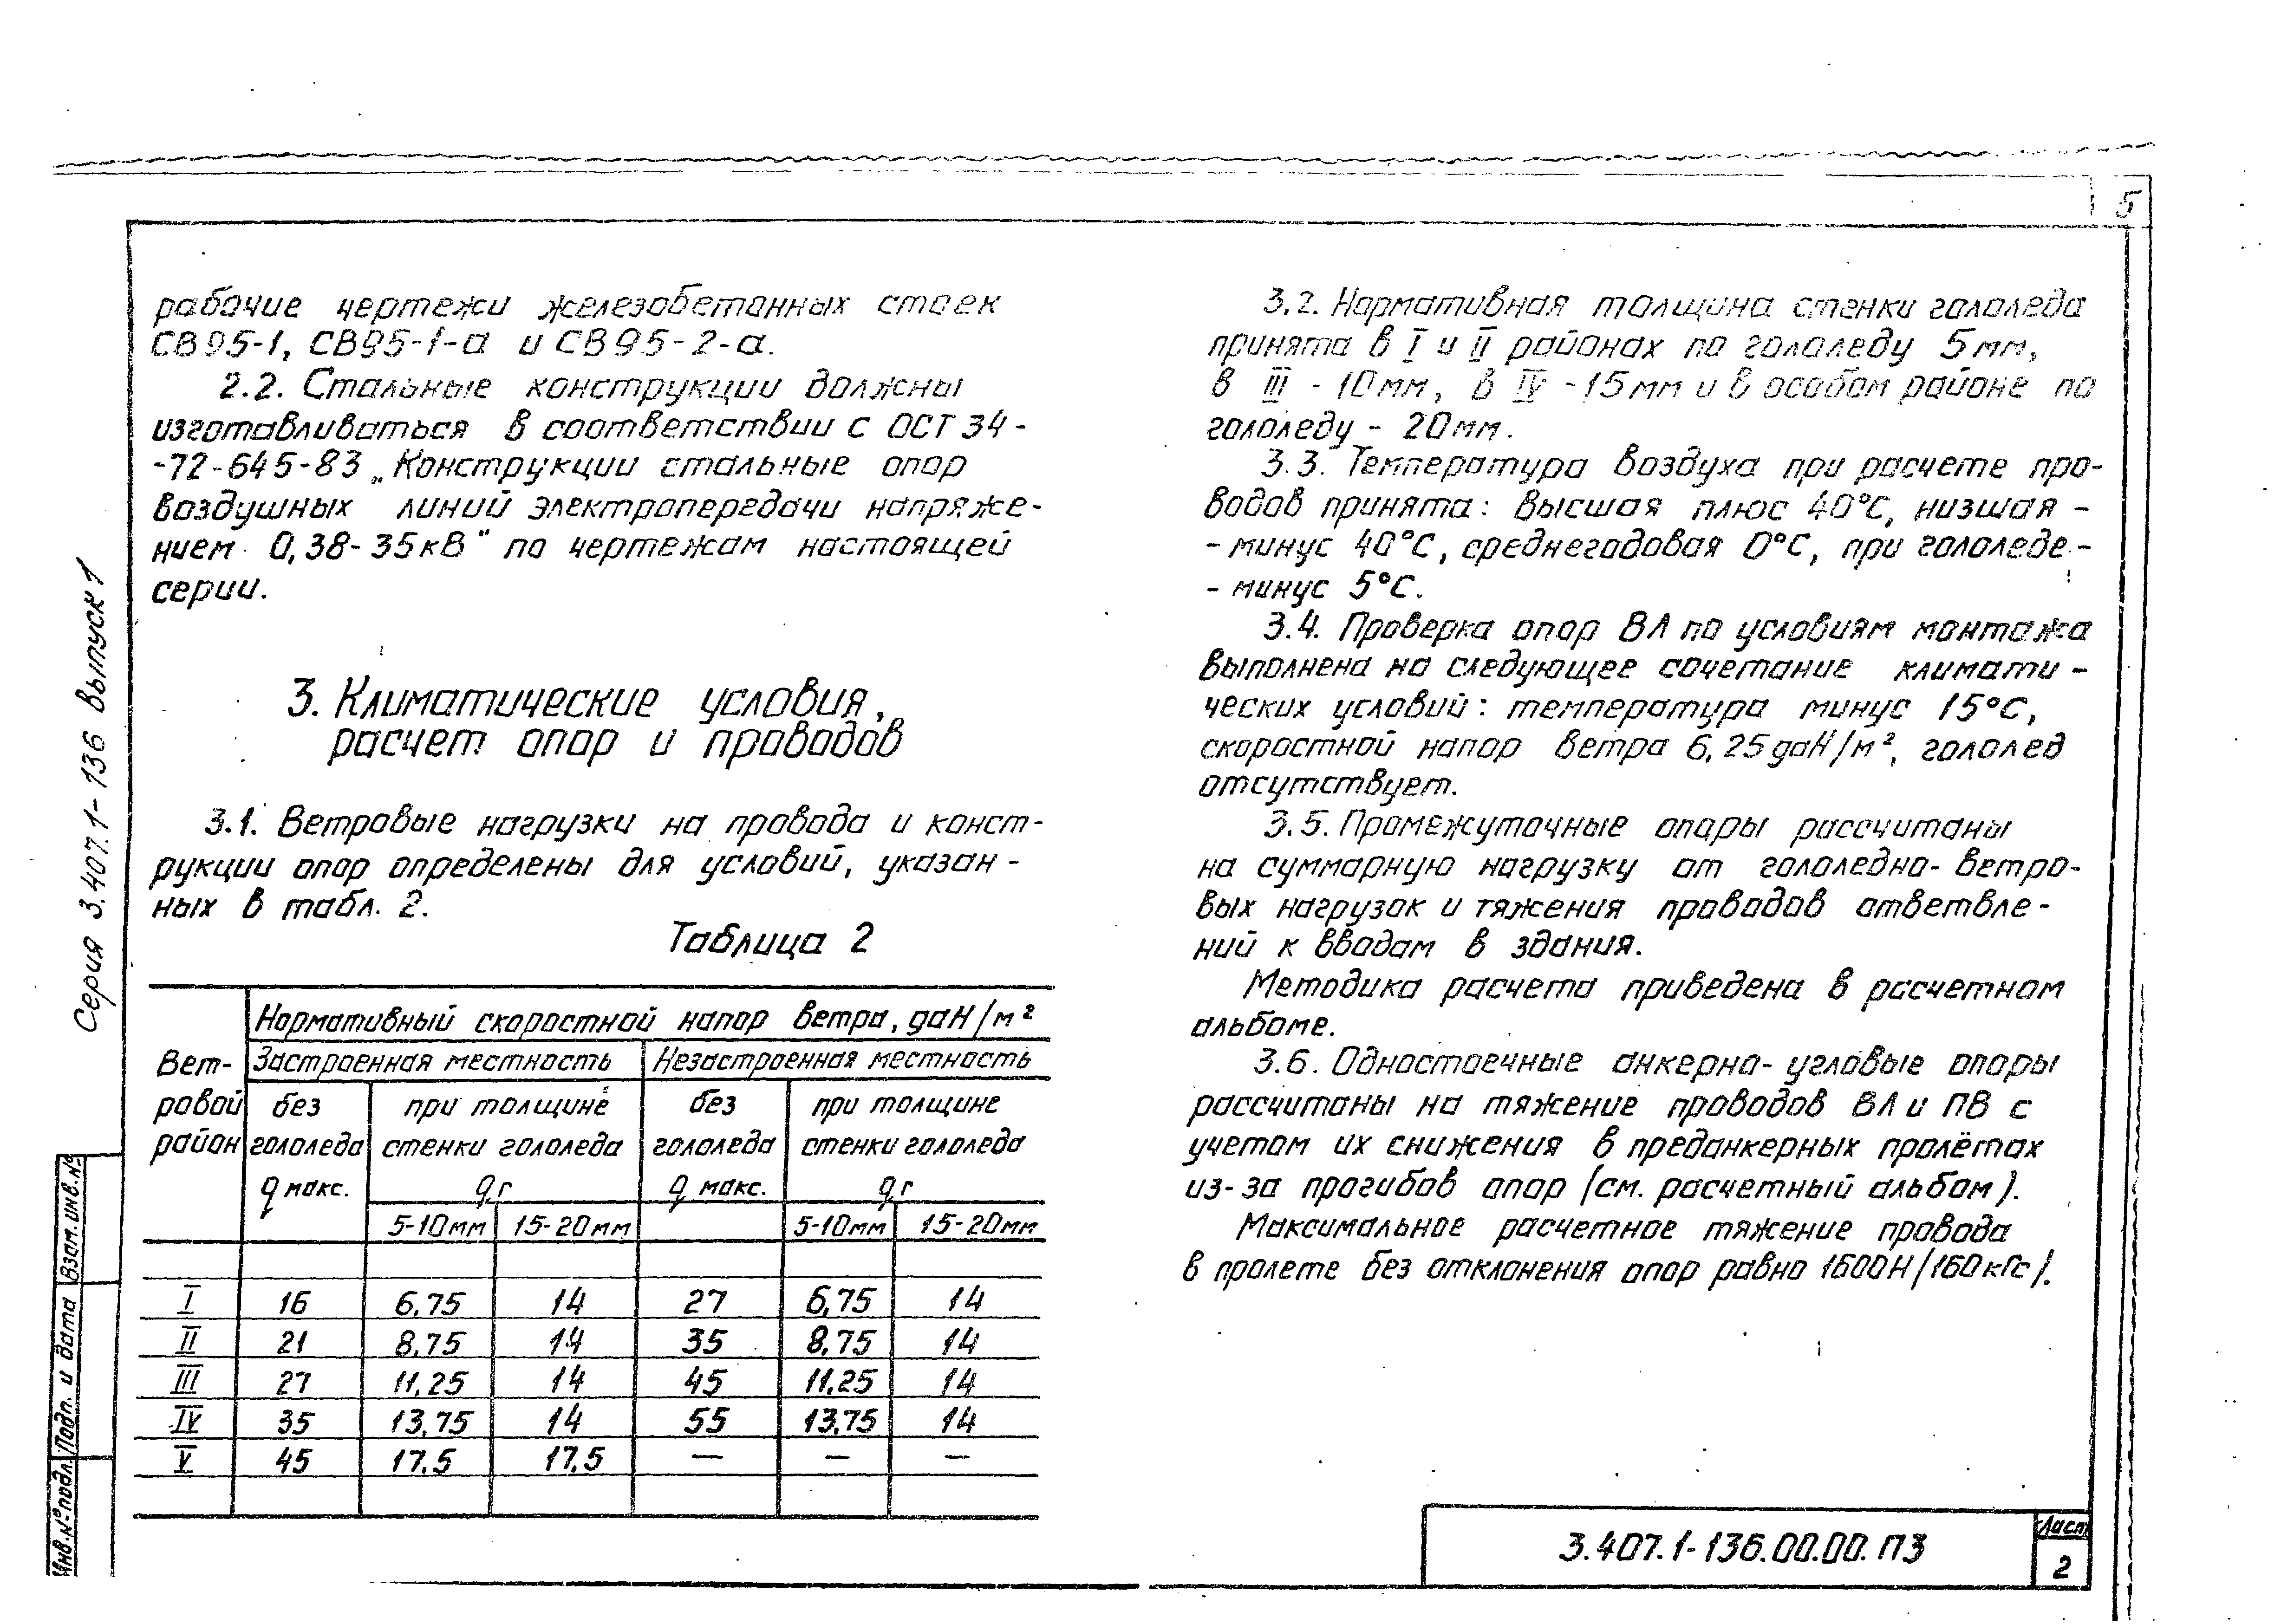 5
рабочие чертежи железобетонных стоек
СВ95-1, СВ95-1-а и СВ95-2-а.
2.2. Стальные конструкции должны
изготавливаться в соответствии с ОСТ 34-
-72-645-83 „Конструкции стальные опор
воздушных линий электропередачи напряже-
нием 0,38-35кВ" по чертежам настоящей
серии.
3. Климатические условия,
расчет опор и проводов
3.1. Ветровые нагрузки на провода и конст-
рукции опор определены для условий, указан-
ных в табл. 2.
Таблица 2
Нормативный скоростной напор ветра, даН/м²
Застроенная местность Незастроенная местность
Вет-
ровой
район
без
гололеда
q макс.
при толщине
стенки гололеда
qг
5-10мм 15-20мм
без
гололеда
q макс.
при толщине
стенки гололеда
qг
5-10мм 15-20мм
I 16 6,75 14 27 6,75 14
II 21 8,75 14 35 8,75 14
III 27 11,25 14 45 11,25 14
IV 35 13,75 14 55 13,75 14
V 45 17,5 17,5 — — —
3.2. Нормативная толщина стенки гололеда
принята в I и II районах по гололеду 5мм,
в III - 10мм, в IV - 15мм и в особом районе по
гололеду - 20мм.
3.3. Температура воздуха при расчете про-
водов принята: высшая плюс 40°С, низшая -
- минус 40°С, среднегодовая 0°С, при гололеде -
- минус 5°С.
3.4. Проверка опор ВЛ по условиям монтажа
выполнена на следующее сочетание климати-
ческих условий: температура минус 15°С,
скоростной напор ветра 6,25 даН/м², гололед
отсутствует.
3.5. Промежуточные опоры рассчитаны
на суммарную нагрузку от гололедно-ветро-
вых нагрузок и тяжения проводов ответвле-
ний к вводам в здания.
Методика расчета приведена в расчетном
альбоме.
3.6. Одностоечные анкерно-угловые опоры
рассчитаны на тяжение проводов ВЛ и ПВ с
учетом их снижения в преданкерных пролётах
из-за прогибов опор (см. расчетный альбом).
Максимальное расчетное тяжение провода
в пролете без отклонения опор равно 1600Н (160кгс).
Серия 3.407.1-136 Выпуск 1
Взам. инв. №
Подп. и дата
Инв. № подл.
3.407.1-136.00.00.ПЗ
Лист
2